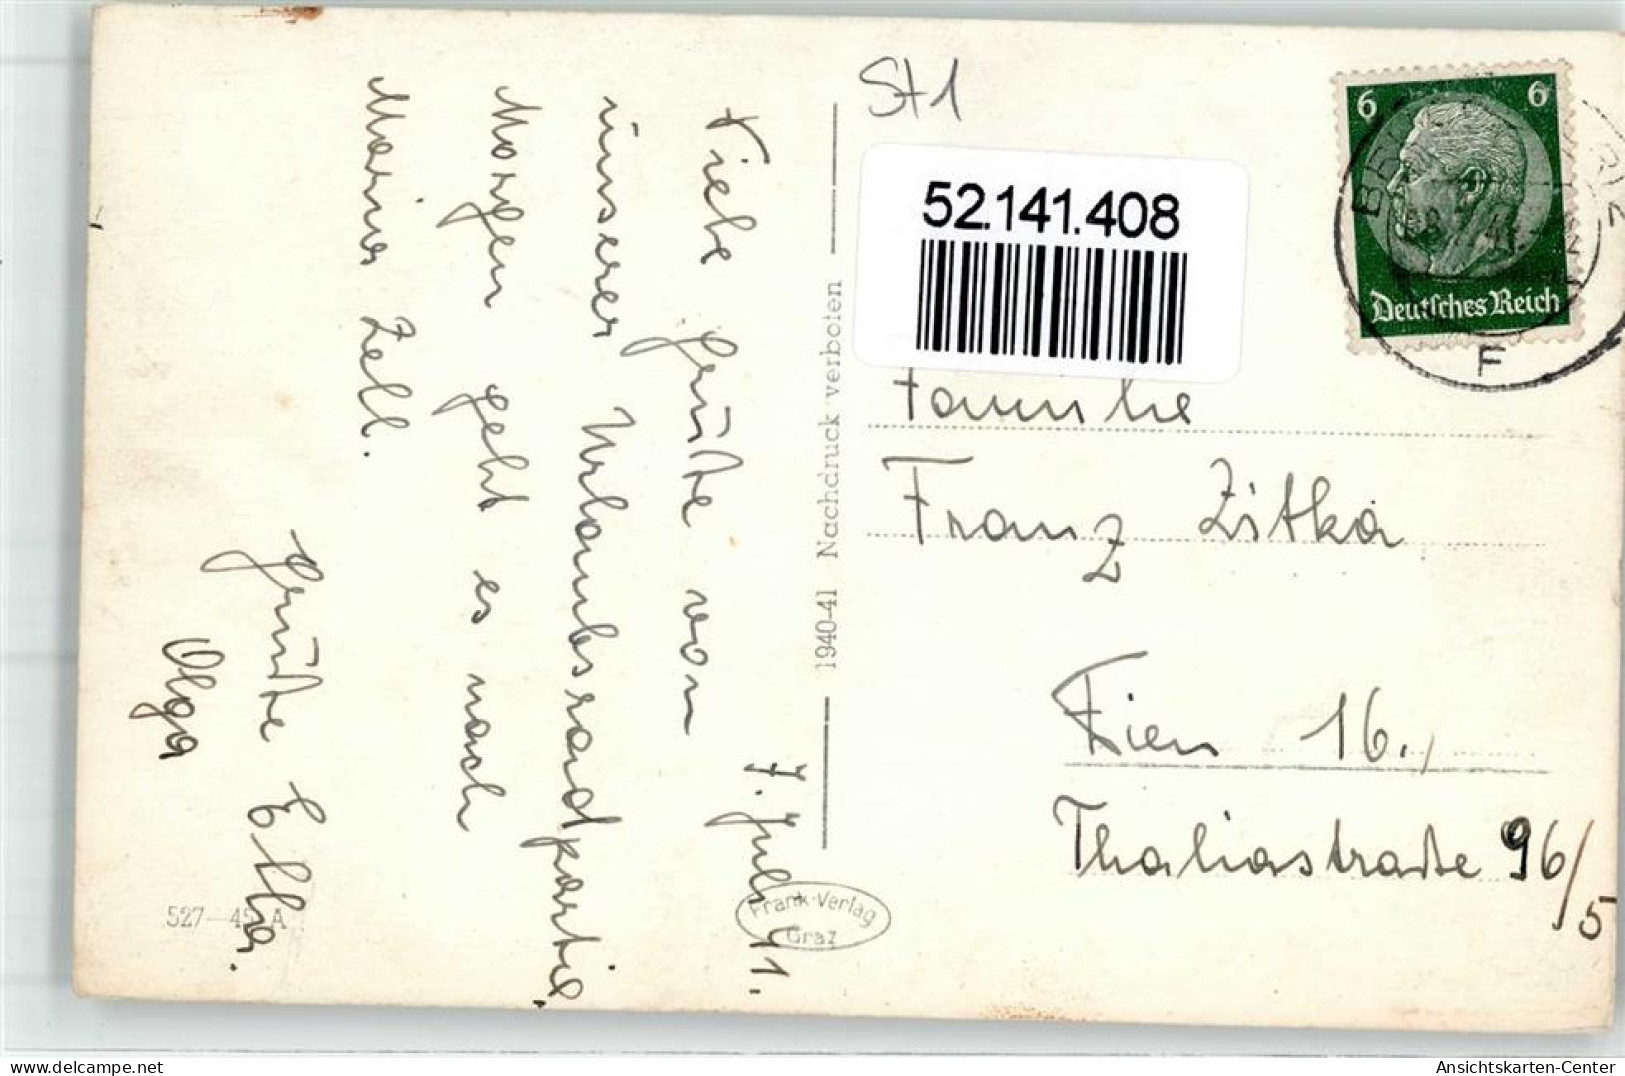 St1
52.141.408
6 6
Deutsches Reich
F
7. Juli 41.
Viele Grüße von
unserer Urlaubsradpartie.
Morgen geht es nach
Maria Zell.
Grüße Ella.
Olga
1940-41 Nachdruck verboten
Familie
Franz Zitka
Wien 16.,
Thaliastraße 96/5
Frank-Verlag
Graz
527 45 A
delcampe.net
Ansichtskarten-Center